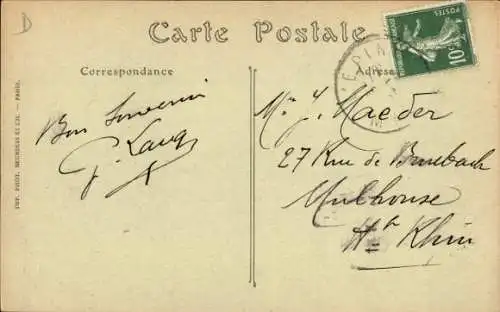 D
Carte Postale
Correspondance
Adresse
POSTES
10c
Bon Souvenir
Mr J. Maeder
27 Rue de
Mulhouse
Ht Rhin
IMP. PHOT. NEURDEIN ET CIE. — PARIS.